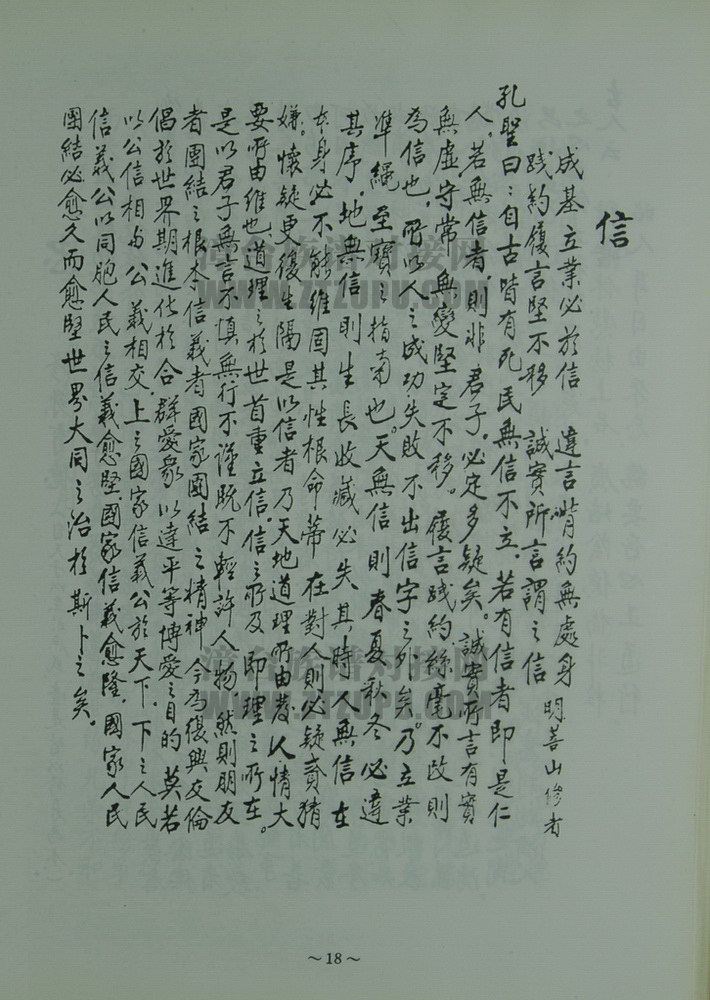 信
成基立業必於信　違言背約無處身
践約履言堅不移　誠實所言謂之信　明善山修者
孔聖曰：自古皆有死，民無信不立。若有信者即是仁
人。若無信者，則非君子，必定多疑矣。誠實所言有實
無虛，守常無變堅定不移。履言践約絲毫不改則
為信也，所以人之成功失敗不出信字之外矣。乃立業
準繩，至寶之指南也。天無信則春夏秋冬必違
其序，地無信則生長收藏必失其時人無信在
本身必不能維固其性根命蒂在對人則必疑貳猜
嫌。懷疑更復生隔是以信者乃天地道理所由發人情大
要所由維也。道理之於世首重立信，信之所及即理之所在。
是以君子無言不慎無行不謹既不輕許人物，然則朋友
者團結之根本信義者國家團結之精神今為復興友倫
倡於世界期進化於合群愛眾以達平等博愛之目的莫若
以公信相与公義相交，上之國家信義公於天下，下之人民
信義公以同胞人民之信義愈堅，國家信義愈隆，國家人民
團結必愈久而愈堅世界大同之治於斯卜之矣。
WWW.ZTZUPU.COM
WWW.ZTZUPU.COM
～18～